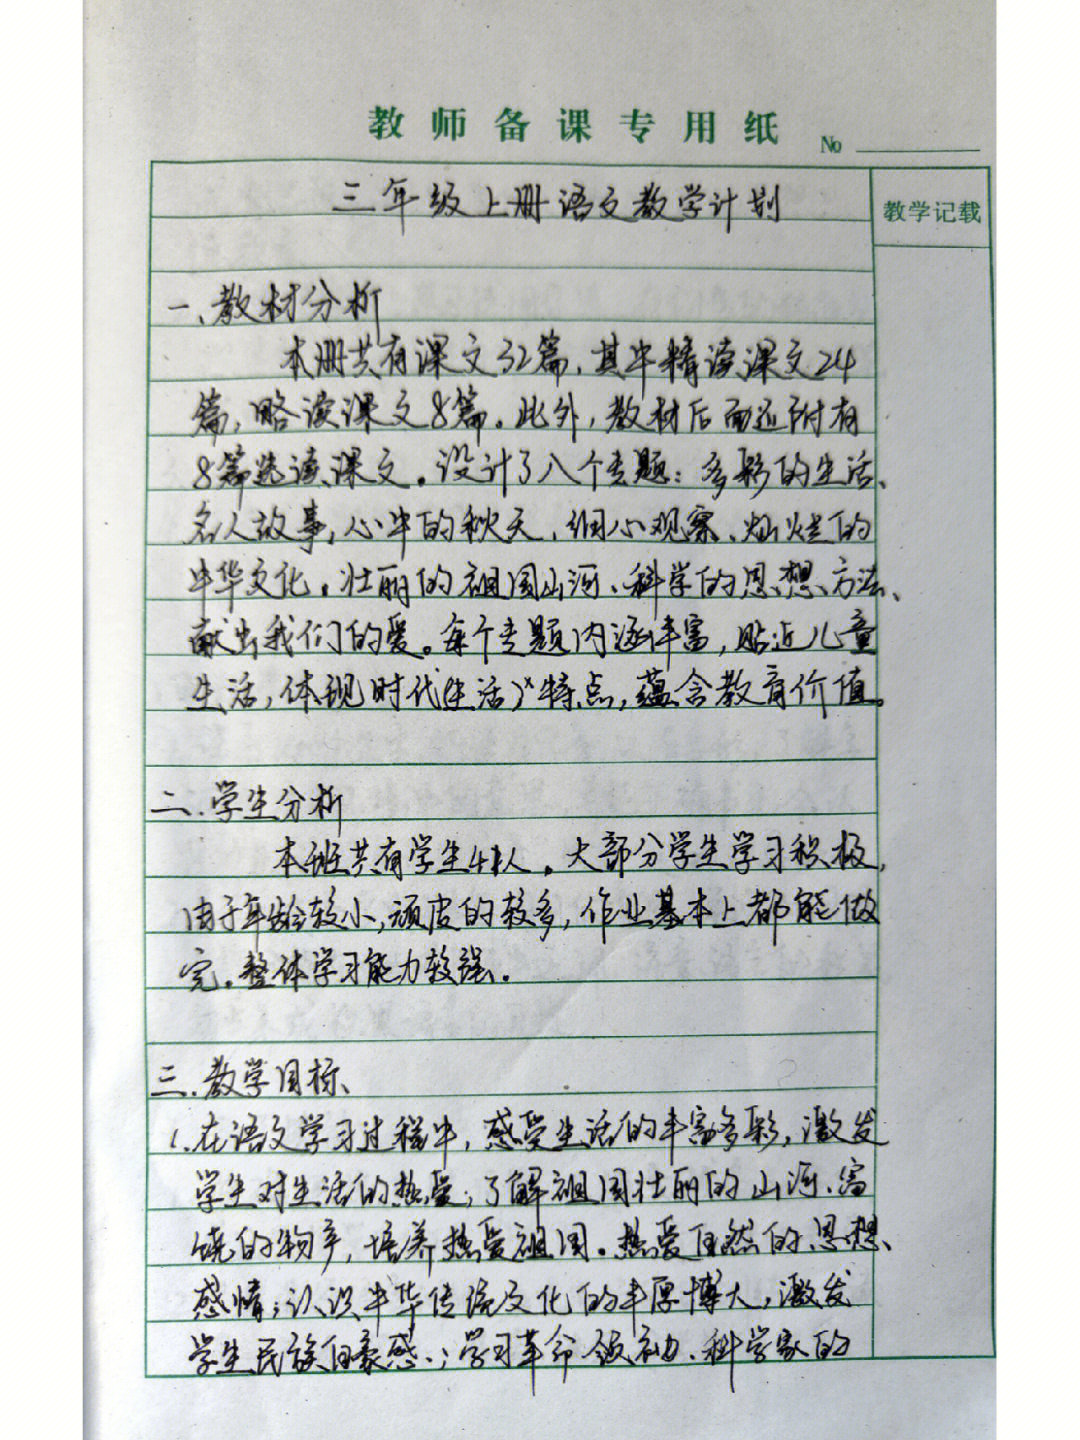 教师备课专用纸
No
教学记载
三年级上册语文教学计划
一、教材分析
本册共有课文32篇，其中精读课文24
篇，略读课文8篇。此外，教材后面还附有
8篇选读课文。设计了八个专题：多彩的生活、
名人故事，心中的秋天、细心观察、灿烂的
中华文化。壮丽的祖国山河、科学的思想、方法、
献出我们的爱。每个专题内涵丰富，贴近儿童
生活，体现时代(生活)特点，蕴含教育价值。
二、学生分析
本班共有学生41人。大部分学生学习积极，
由于年龄较小，顽皮的较多，作业基本上都能做
完。整体学习能力较强。
三、教学目标
1.在语文学习过程中，感受生活的丰富多彩，激发
学生对生活的热爱；了解祖国壮丽的山河、富
饶的物产，培养热爱祖国。热爱自然的思想、
感情；认识中华传统文化的丰厚博大，激发
学生民族自豪感；学习革命领袖、科学家的